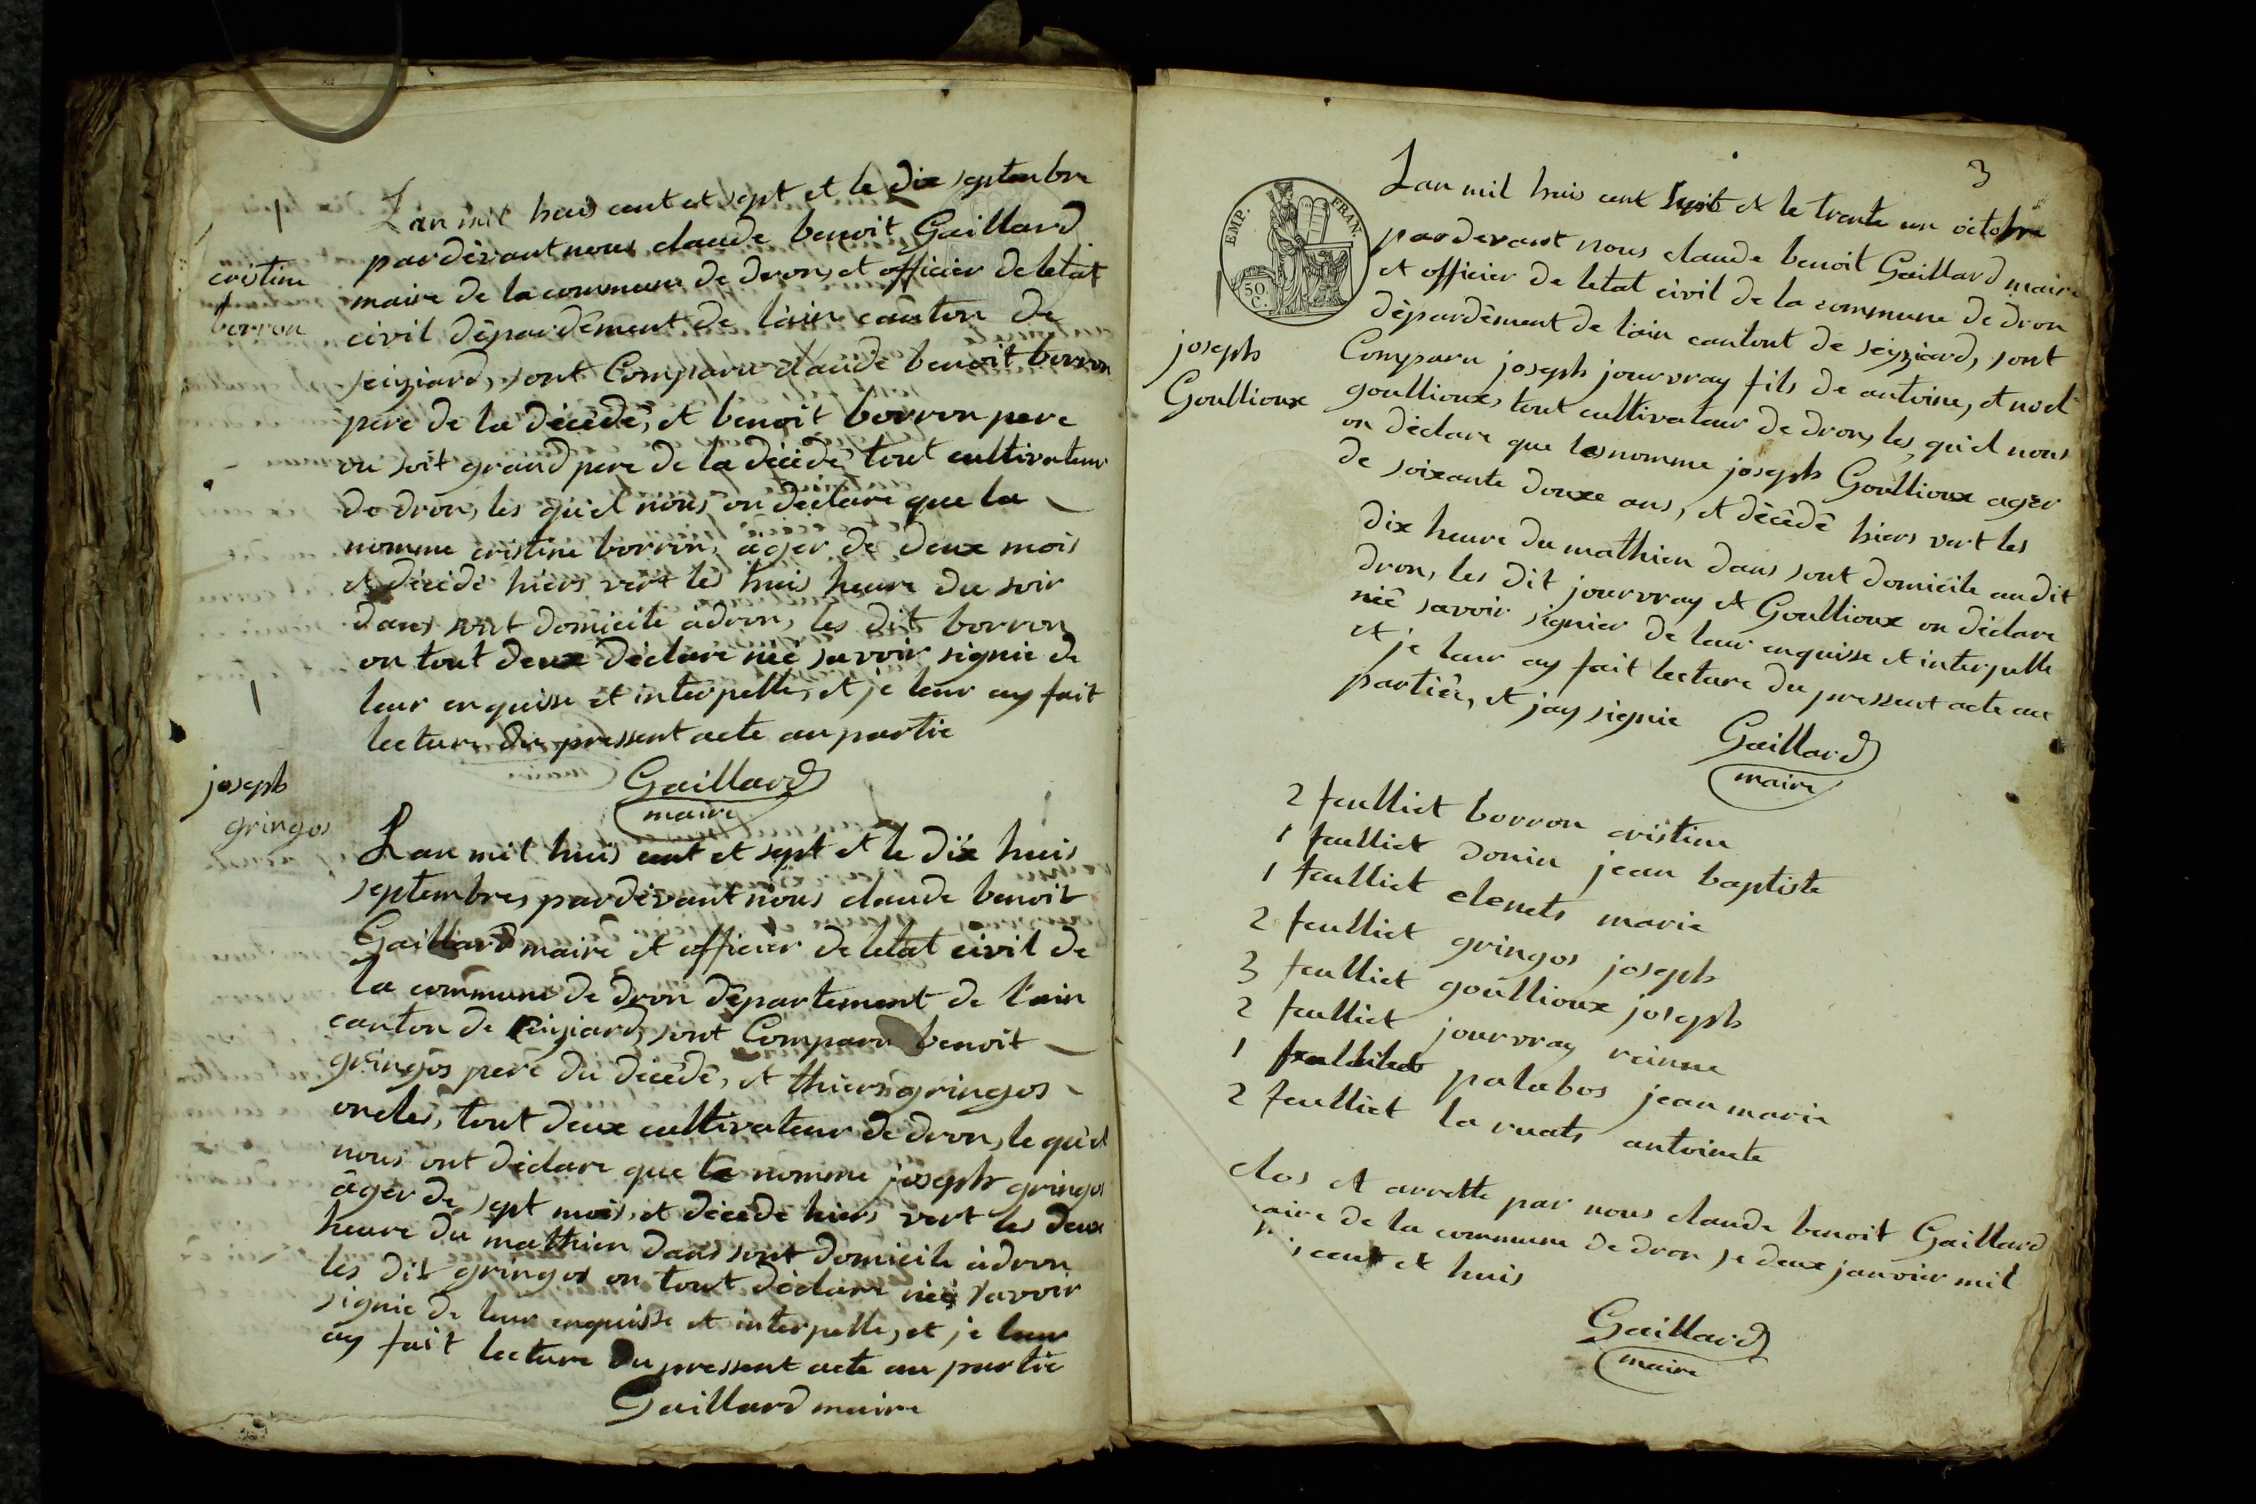 Lan mil huis cent et sept et le dix septembre
pardèvant nous claude benoit Gaillard
maire de la commune de dron, et officier de letat
civil dèpardèment de l'ain canton de
seiziard, sont Comparu claude benoit borron
pere de la dècèdê, et benoit borron pere
ou soit grand pere de la dècèdè tout cultivateur
de dron, les qu'el nous on declare que la
nomme cristine borron, âger de deux mois
et dècèdè hiers vert les huis heure du soir
dans sont domicile à dron, les dit borron
on tout deux dèclare nié savoir signie de
leur enquisse et interpelle, et je leur ay fait
lecture du pressent acte au partie
Gaillard
maire
cristine
borron
joseph
gringos
Lan mil huis cent et sept et le dix huis
septembres pardèvant nous claude benoit
Gaillard maire et officier de letat civil de
la commune de dron dèpartement de l'ain
canton de seiziard, sont Comparu benoit
gringos pere du dècèdè, et thiers gringos
oncles, tout deux cultivateur de dron, le qu'el
nous ont dèclare que le nomme joseph gringos
âger de sept mois, et dècède hiers vert les deux
heure du mathien dans sont domicile à dron
les dit gringos on tout dèclare nié savoir
signie de leur enquisse et interpelle, et je leur
ay fait lecture du pressent acte au partie
Gaillard maire
3
EMP. FRAN.
50 C.
Lan mil huis cent sept et le trente un octobre
pardevant nous claude benoit Gaillard maire
et officier de letat civil de la commune de dron
dèpardèment de l'ain cantont de seiziard, sont
Comparu joseph jourvray fils de antoine, et noel
goullioux, tout cultivateur de dron, les qu'el nous
on dèclare que les nomme joseph Goullioux ager
de soixante douxe ans, et dècèdê hiers vert les
dix heure du mathien dans sont domicile au dit
dron, les dit jourvray et Goullioux on dèclare
nié savoir signier de leur enquisse et interpelle
et je leur ay fait lecture du pressent acte aux
partiês, et jay signie
Gaillard
maire
joseph
Goullioux
2 feulliet borron cristine
1 feulliet donin jean baptiste
1 feulliet clenets marie
2 feulliet gringos joseph
3 feulliet goullioux joseph
2 feulliet jourvray reinne
1 feulliet palabos jean marie
2 feulliet la ruats antoinete
clos et arrette par nous claude benoit Gaillard
maire de la commune de dron se deux janvier mil
cent et huis
Gaillard
maire